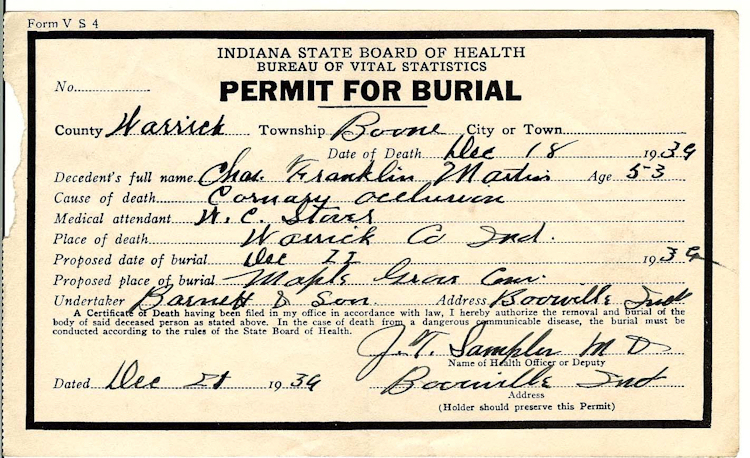 Form V S 4
INDIANA STATE BOARD OF HEALTH
BUREAU OF VITAL STATISTICS
No.
PERMIT FOR BURIAL
County Warrick Township Boone City or Town
Date of Death Dec 18 1939
Decedent's full name Chas. Franklin Martin Age 53
Cause of death Cornary occlusion
Medical attendant W. C. Stover
Place of death Warrick Co Ind.
Proposed date of burial Dec 1939
Proposed place of burial Maple Grove Cem.
Undertaker Barnett & Son Address Boonville Ind
A Certificate of Death having been filed in my office in accordance with law, I hereby authorize the removal and burial of the
body of said deceased person as stated above. In the case of death from a dangerous communicable disease, the burial must be
conducted according to the rules of the State Board of Health.
J. T. Sampler M D
Name of Health Officer or Deputy
Dated Dec 21 1939 Boonville Ind
Address
(Holder should preserve this Permit)